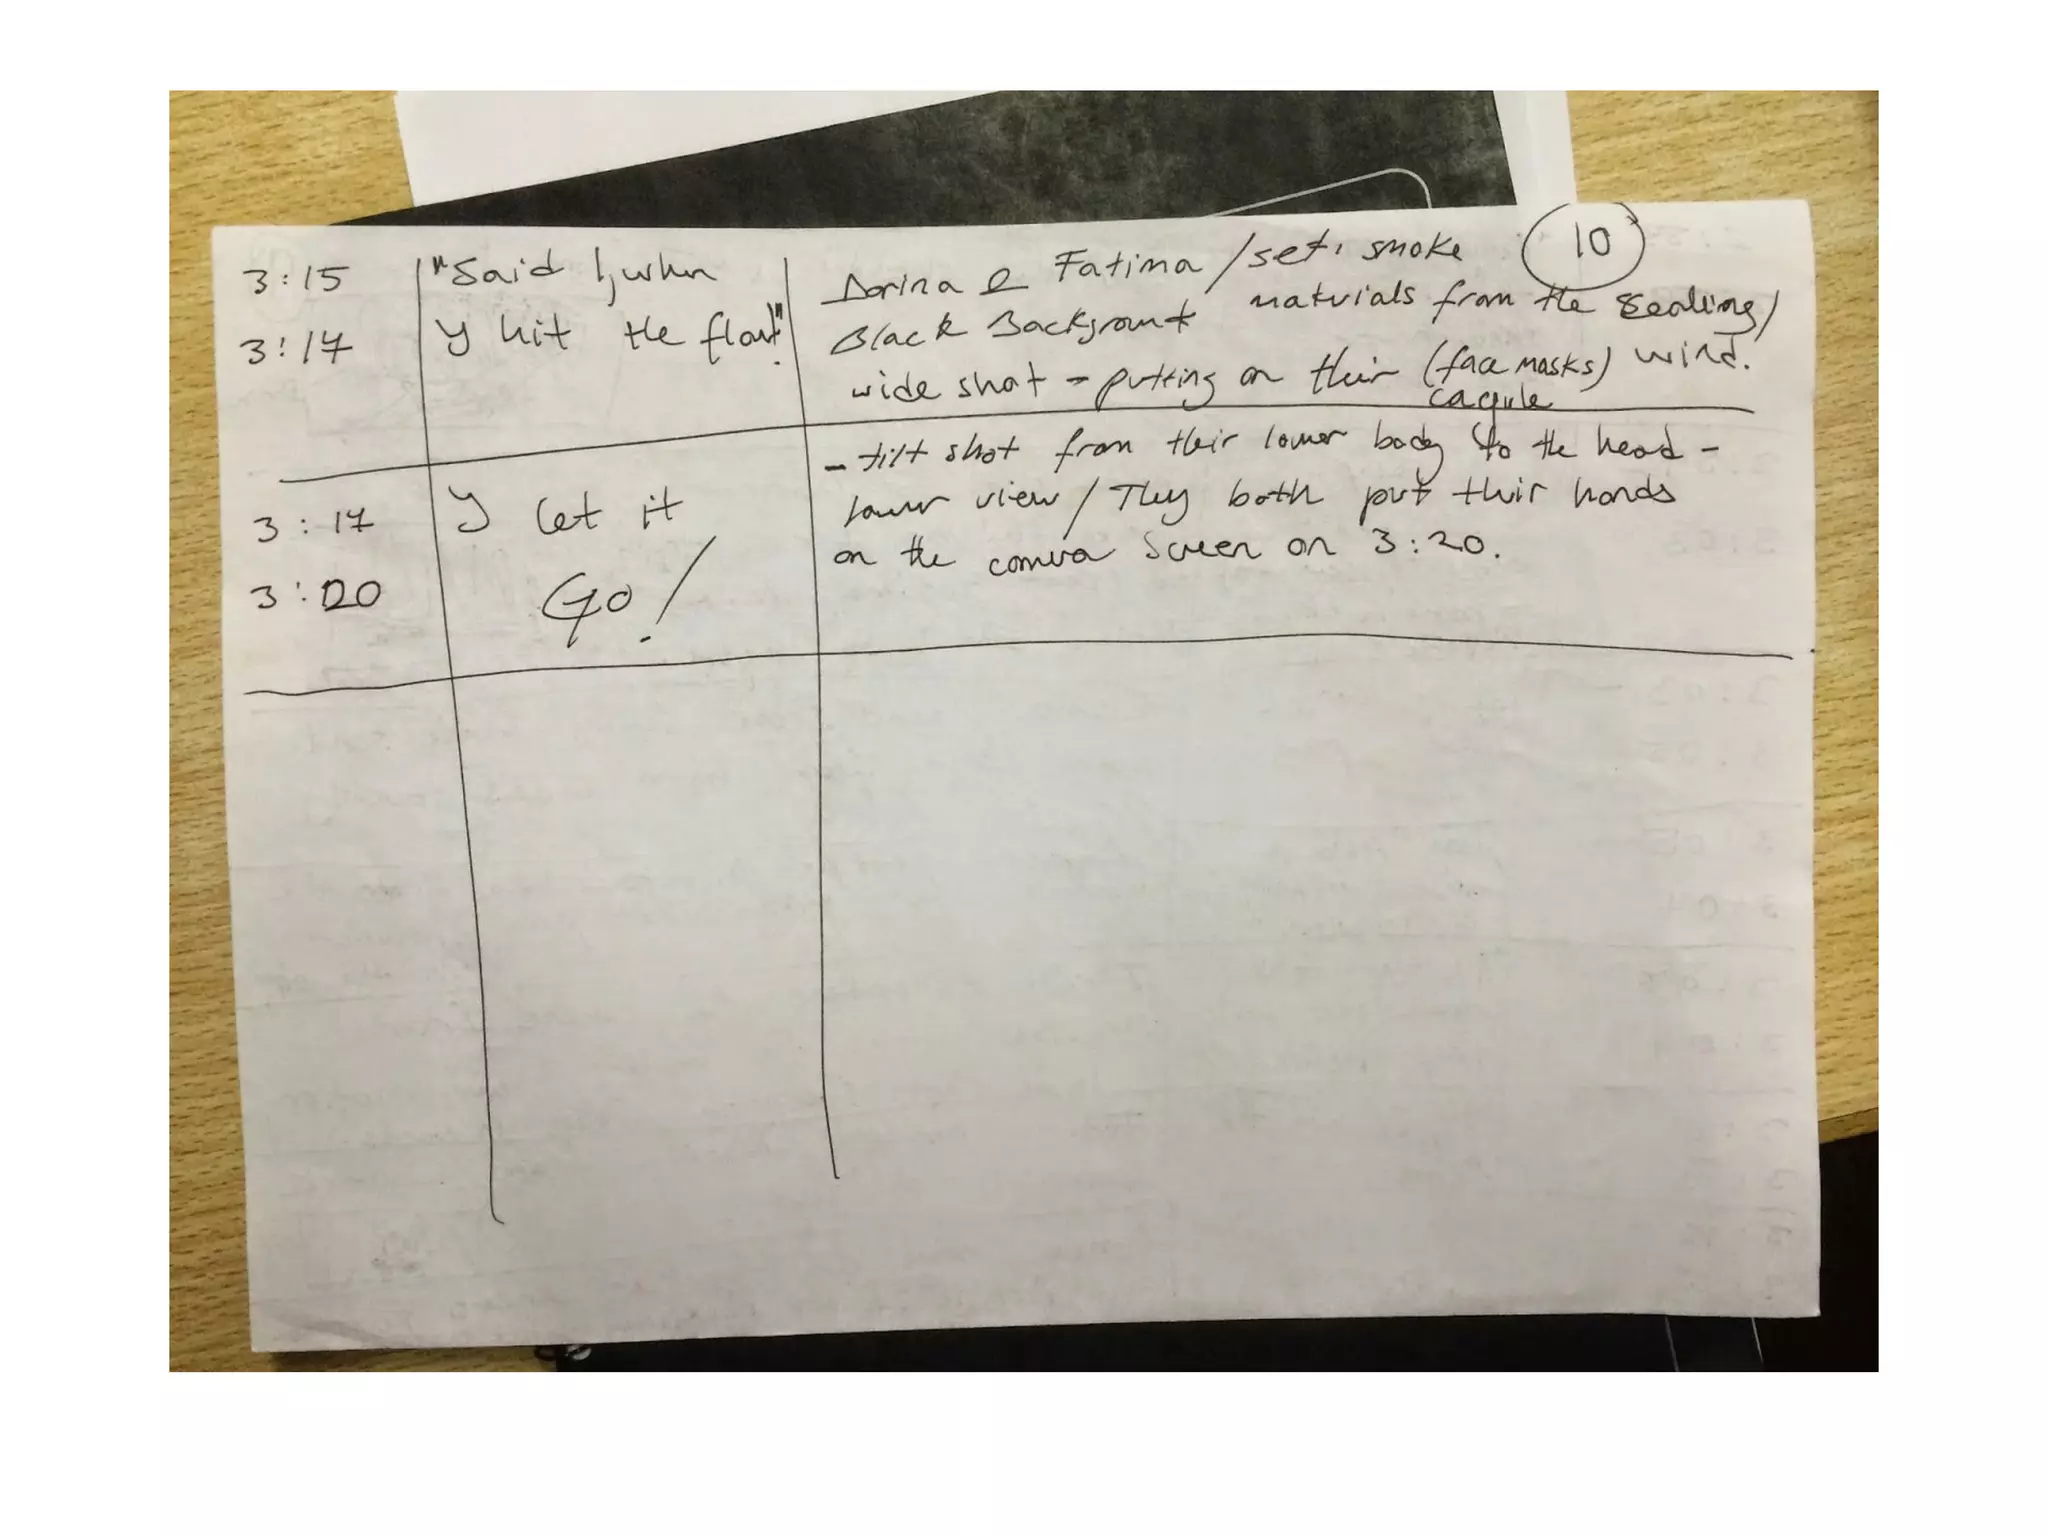 10
3:15
3:17
"Said I, when
y hit the floar"
Dorina & Fatima / set, smoke
Black Backgrount materials from the sealing/
wide shot - putting on their (face masks) wind.
cagule
3:17
3:20
y let it
Go!
- tilt shot from their lower body to the head -
lower view / They both put their hands
on the camera screen on 3:20.